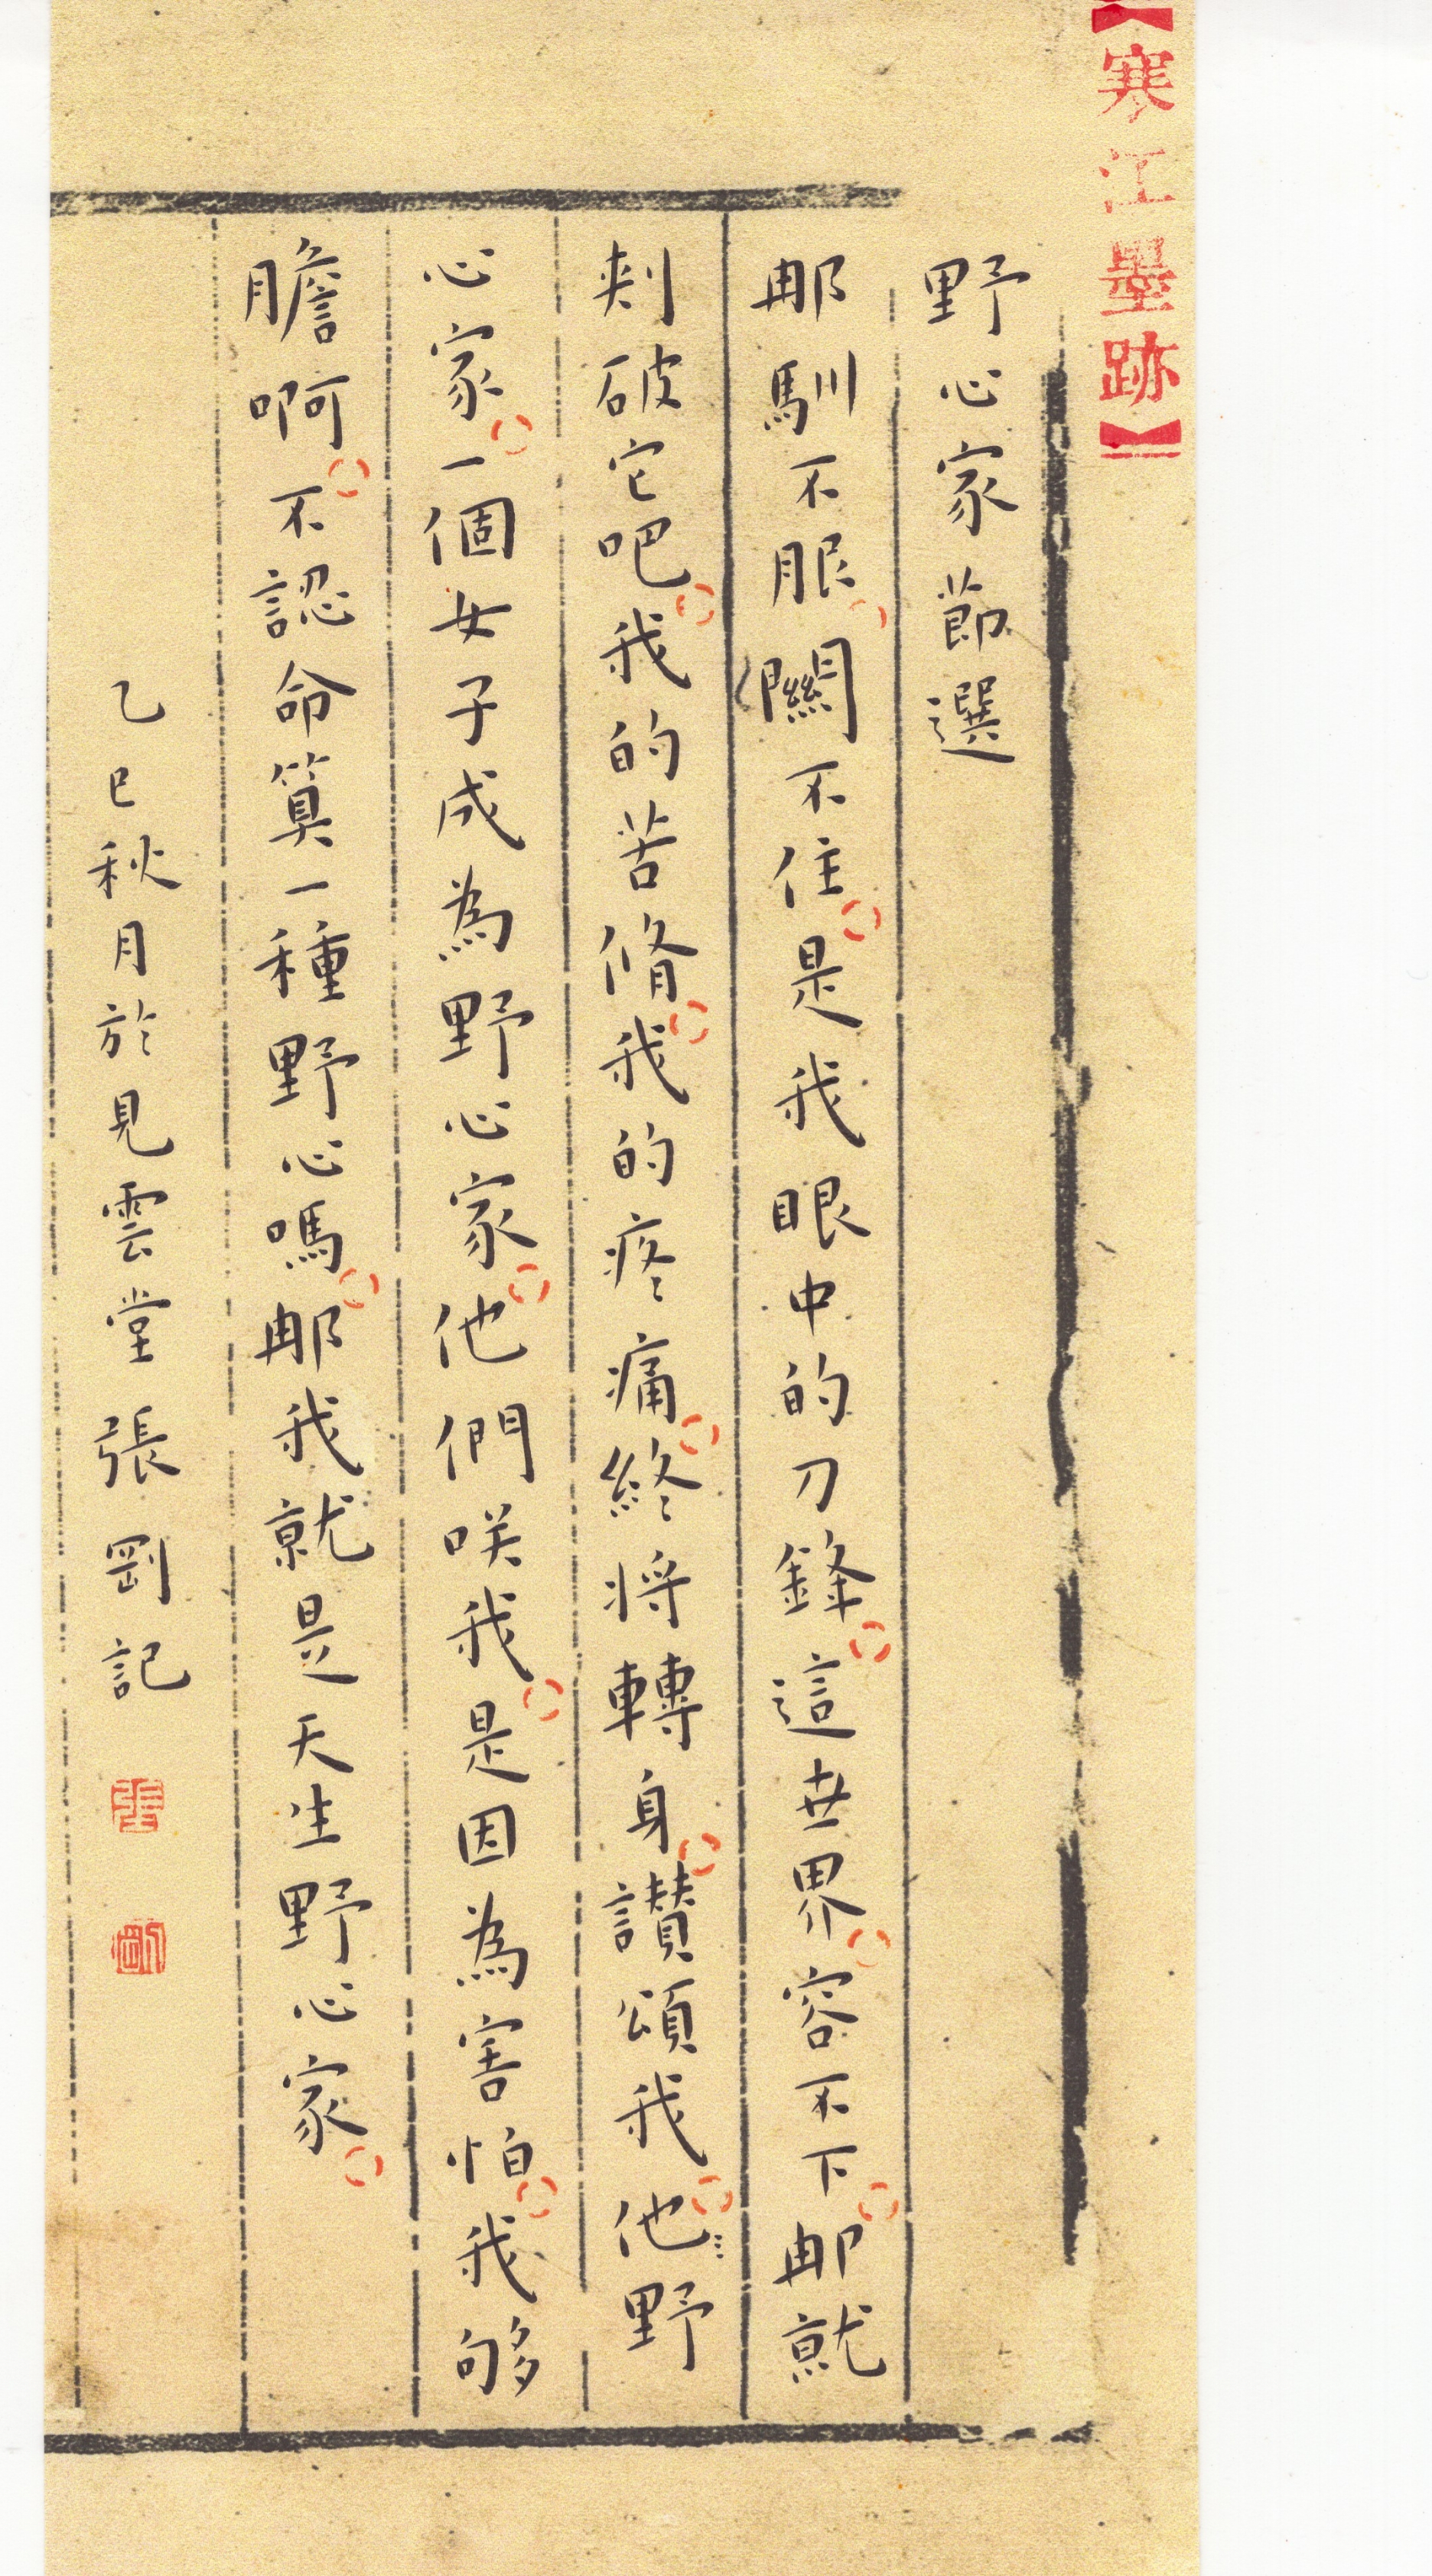 【寒江墨跡】
野心家節選
那馴不服關不住是我眼中的刀鋒這世界容不下那就
刺破它吧我的苦脩我的疼痛終將轉身讚頌我他野
心家一個女子成為野心家他們咲我是因為害怕我够
膽啊不認命算一種野心嗎那我就是天生野心家
乙巳秋月於見雲堂張剛記